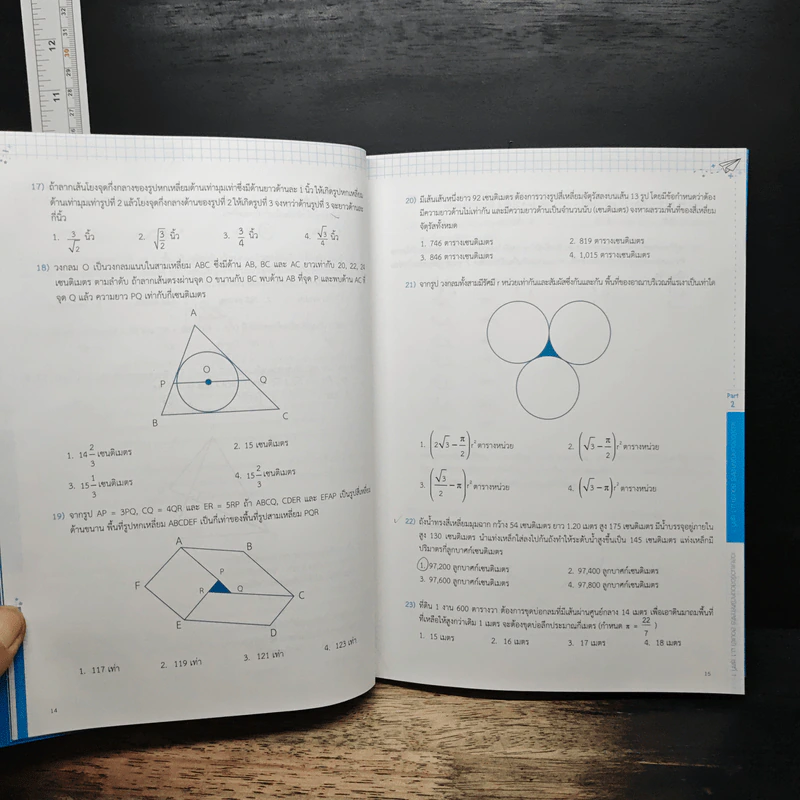 17) ถ้าลากเส้นโยงจุดกึ่งกลางของรูปหกเหลี่ยมด้านเท่ามุมเท่าซึ่งมีด้านยาวด้านละ 1 นิ้ว ให้เกิดรูปหกเหลี่ยม
ด้านเท่ามุมเท่ารูปที่ 2 แล้วโยงจุดกึ่งกลางด้านของรูปที่ 2 ให้เกิดรูปที่ 3 จงหาว่าด้านรูปที่ 3 จะยาวด้านละ
กี่นิ้ว
1. 3/√2 นิ้ว 2. √(3/2) นิ้ว 3. 3/4 นิ้ว 4. √3/4 นิ้ว
18) วงกลม O เป็นวงกลมแนบในสามเหลี่ยม ABC ซึ่งมีด้าน AB, BC และ AC ยาวเท่ากับ 20, 22,
เซนติเมตร ตามลำดับ ถ้าลากเส้นตรงผ่านจุด O ขนานกับ BC พบด้าน AB ที่จุด P และพบด้าน AC ที่
จุด Q แล้ว ความยาว PQ เท่ากับกี่เซนติเมตร
A
O
P
Q
B
C
1. 14 2/3 เซนติเมตร 2. 15 เซนติเมตร
3. 15 1/3 เซนติเมตร 4. 15 2/3 เซนติเมตร
19) จากรูป AP = 3PQ, CQ = 4QR และ ER = 5RP ถ้า ABCQ, CDER และ EFAP เป็นรูปสี่เหลี่ยม
ด้านขนาน พื้นที่รูปหกเหลี่ยม ABCDEF เป็นกี่เท่าของพื้นที่รูปสามเหลี่ยม PQR
A
B
P
F
R
Q
C
E
D
1. 117 เท่า 2. 119 เท่า 3. 121 เท่า 4. 123 เท่า
14
20) มีเส้นเส้นหนึ่งยาว 92 เซนติเมตร ต้องการวางรูปสี่เหลี่ยมจัตุรัสลงบนเส้น 13 รูป โดยมีข้อกำหนดว่าต้อง
มีความยาวด้านไม่เท่ากัน และมีความยาวด้านเป็นจำนวนนับ (เซนติเมตร) จงหาผลรวมพื้นที่ของสี่เหลี่ยม
จัตุรัสทั้งหมด
1. 746 ตารางเซนติเมตร 2. 819 ตารางเซนติเมตร
3. 846 ตารางเซนติเมตร 4. 1,015 ตารางเซนติเมตร
21) จากรูป วงกลมทั้งสามมีรัศมี r หน่วยเท่ากันและสัมผัสซึ่งกันและกัน พื้นที่ของอาณาบริเวณที่แรเงาเป็นเท่าใด
1. (2√3 − π/2) r² ตารางหน่วย 2. (√3 − π/2) r² ตารางหน่วย
3. (√3/2 − π) r² ตารางหน่วย 4. (√3 − π) r² ตารางหน่วย
22) ถังน้ำทรงสี่เหลี่ยมมุมฉาก กว้าง 54 เซนติเมตร ยาว 1.20 เมตร สูง 175 เซนติเมตร มีน้ำบรรจุอยู่ภายใน
สูง 130 เซนติเมตร นำแท่งเหล็กใส่ลงไปก้นถังทำให้ระดับน้ำสูงขึ้นเป็น 145 เซนติเมตร แท่งเหล็กมี
ปริมาตรกี่ลูกบาศก์เซนติเมตร
1. 97,200 ลูกบาศก์เซนติเมตร 2. 97,400 ลูกบาศก์เซนติเมตร
3. 97,600 ลูกบาศก์เซนติเมตร 4. 97,800 ลูกบาศก์เซนติเมตร
23) ที่ดิน 1 งาน 600 ตารางวา ต้องการขุดบ่อกลมที่มีเส้นผ่านศูนย์กลาง 14 เมตร เพื่อเอาดินมาถมพื้นที่
ที่เหลือให้สูงกว่าเดิม 1 เมตร จะต้องขุดบ่อลึกประมาณกี่เมตร (กำหนด π = 22/7 )
1. 15 เมตร 2. 16 เมตร 3. 17 เมตร 4. 18 เมตร
15
Part
2
12
11